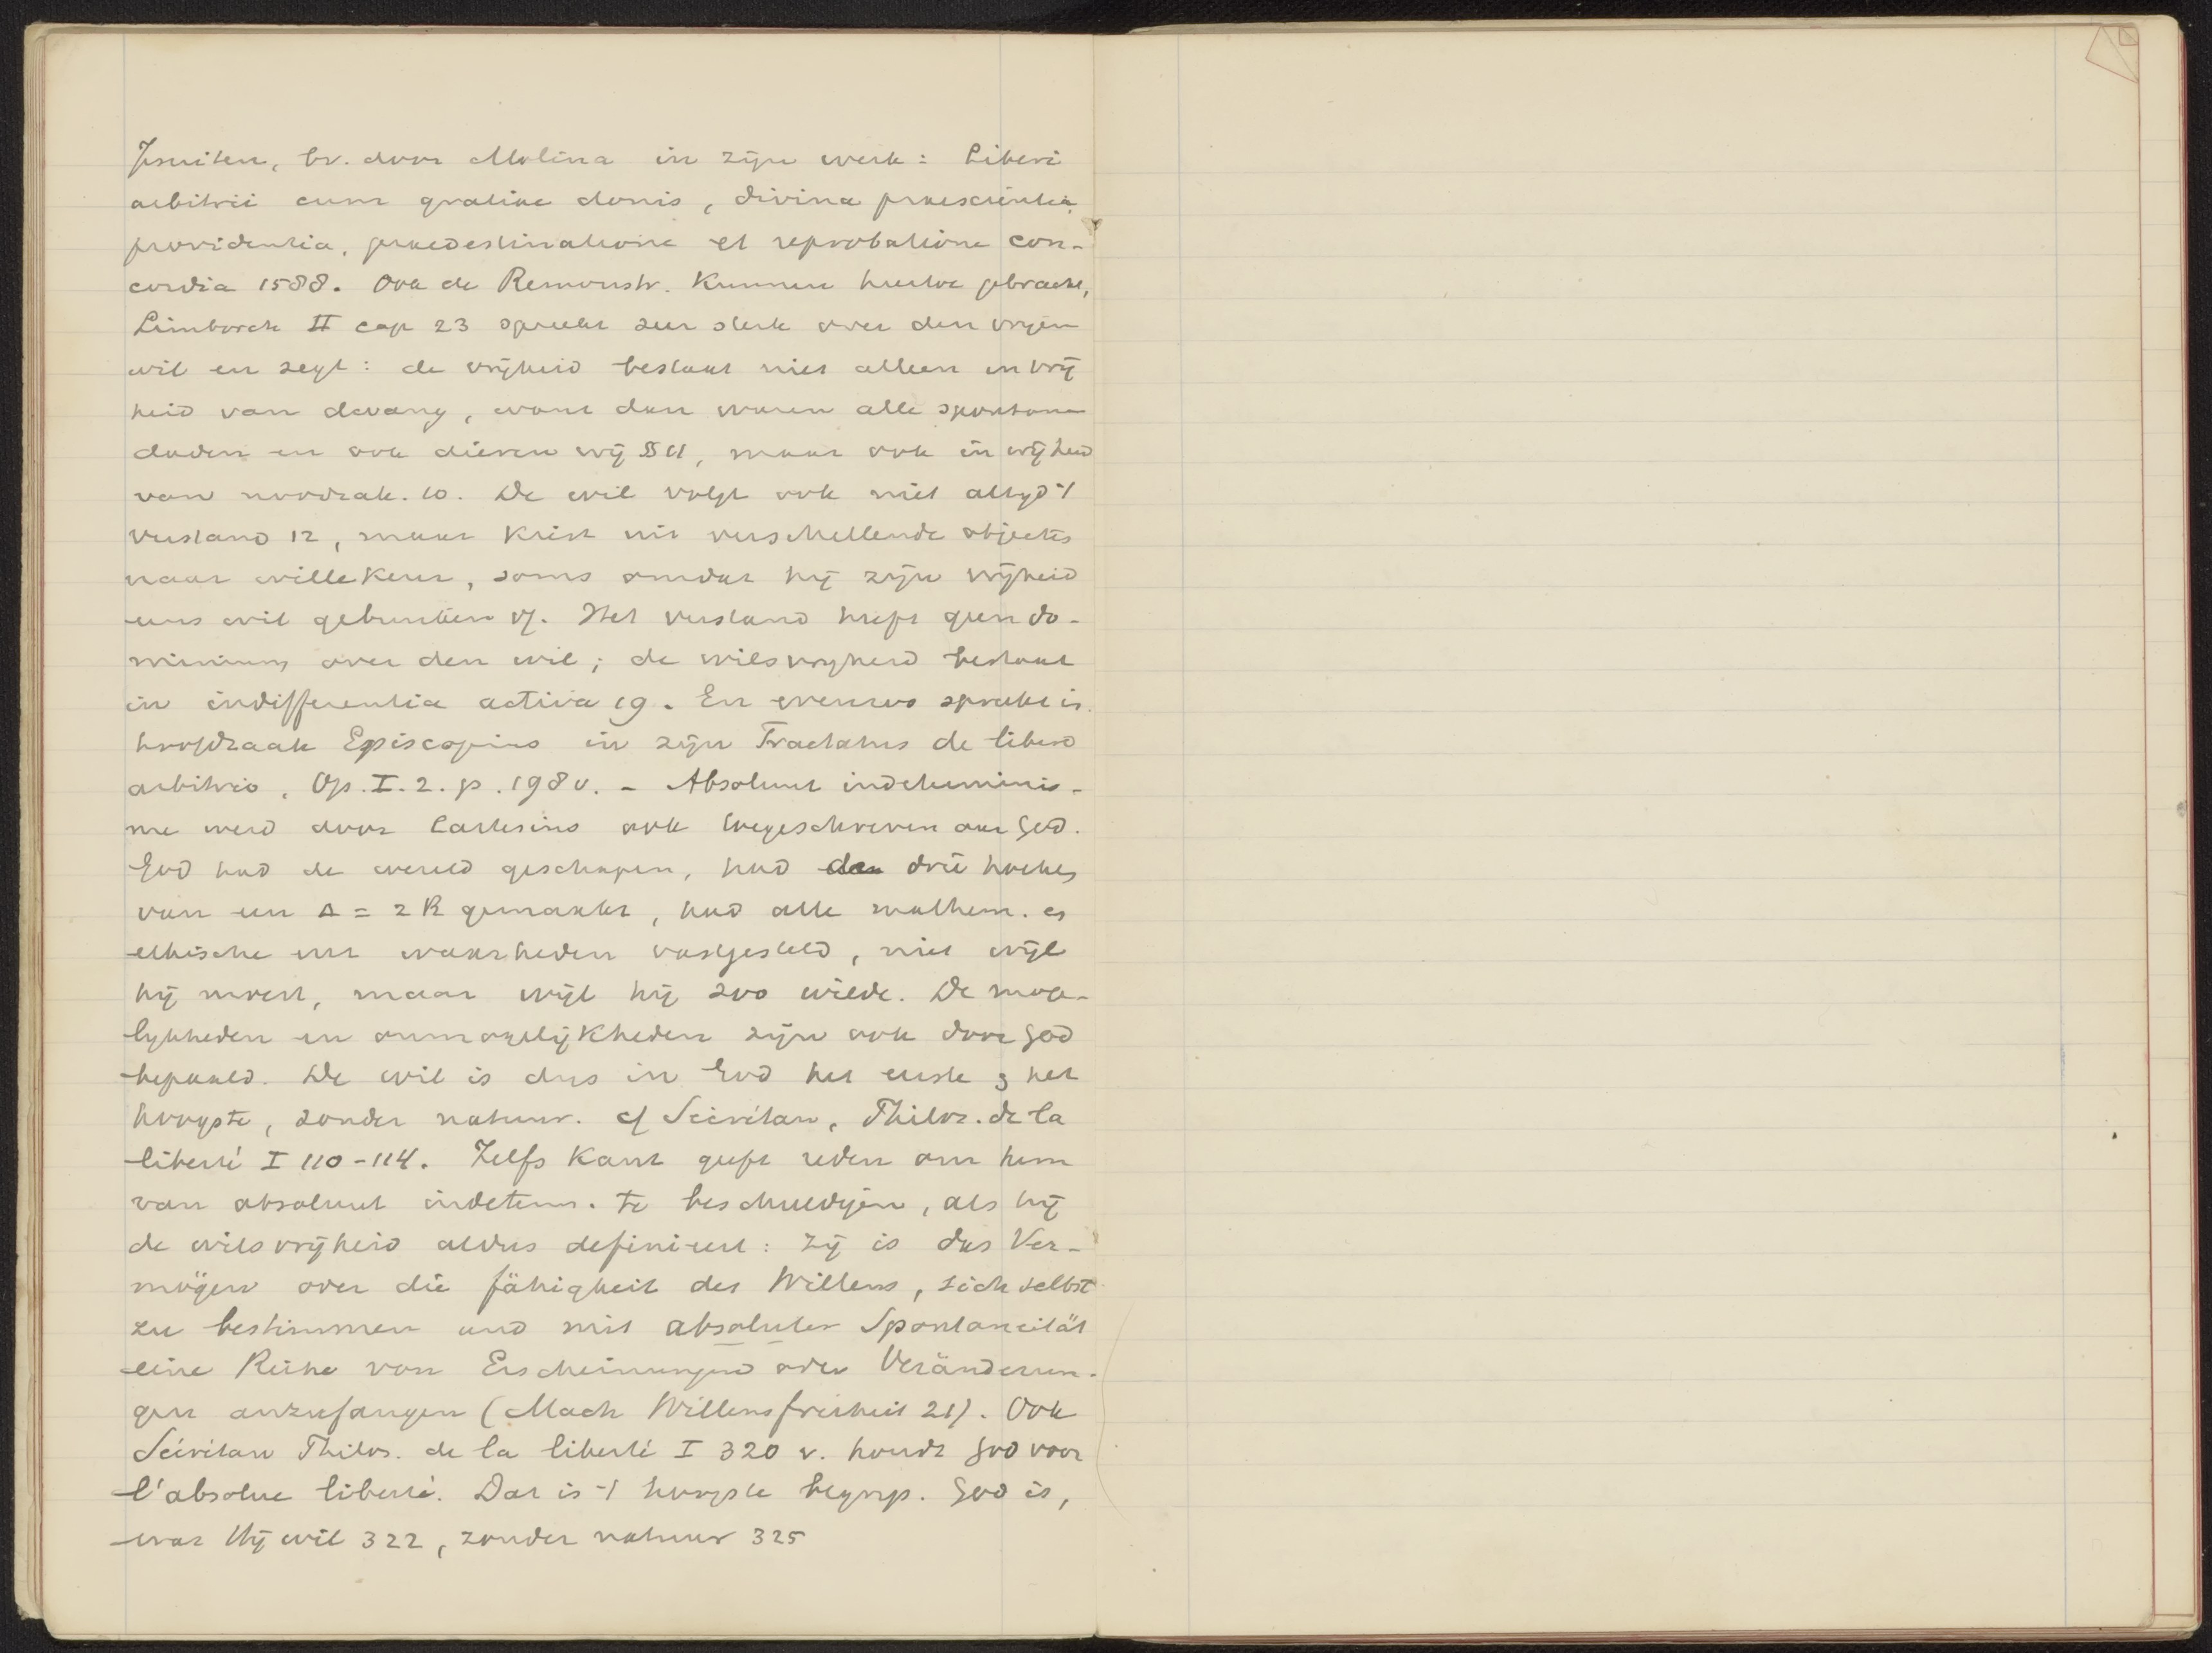 Jesuiten, bv. door Molina in zijn werk: Liberi
arbitrii cum gratiae donis, divina praescientia,
providentia, praedestinatione et reprobatione con-
cordia 1588. Ook de Remonstr. kunnen hiertoe gebracht,
Limborch II cap 23 spreekt zeer sterk over den vrijen
wil en zegt: de vrijheid bestaat niet alleen in vrij
heid van dwang, want dan waren alle spontane
daden en ook dieren vrij § 11, maar ook in vrijheid
van noodzak. 10. De wil volgt ook niet altijd 't
verstand 12, maar kiest uit verschillende objecten
naar willekeur, soms omdat hij zijn vrijheid
eens wil gebruiken 17. Het verstand heeft geen do-
minium over den wil; de wilsvrijheid bestaat
in indifferentia activa 19. En evenzoo spreekt in
hoofdzaak Episcopius in zijn Tractatus de libero
arbitrio, Op. I. 2. p. 198 v. - Absoluut indeterminis-
me werd door Cartesius ook toegeschreven aan God.
God had de wereld geschapen, had drie hoeken
van een Δ = 2 R gemaakt, had alle mathem. en
ethische waarheden vastgesteld, niet wijl
hij moest, maar wijl hij zoo wilde. De moge-
lijkheden en onmogelijkheden zijn ook door God
bepaald. De wil is dus in God het eerste & het
hoogste, zonder natuur. cf Sécrétan, Philos. de la
liberté I 110-114. Zelfs Kant geeft reden om hem
van absoluut indeterm. te beschuldigen, als hij
de wilsvrijheid aldus definieert: zij is das Ver-
mögen oder die fähigkeit des Willens, sich selbst
zu bestimmen und mit absoluter Spontaneität
eine Reihe von Erscheinungen oder Veränderun-
gen anzufangen (Mach Willensfreiheit 21). Ook
Sécrétan Philos. de la liberté I 320 v. houdt God voor
l'absolue liberté. Dat is 't hoogste begrip. God is,
wat Hij wil 322, zonder natuur 325